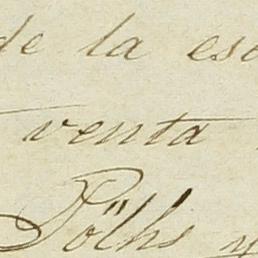 de la es
venta
Pölhs y